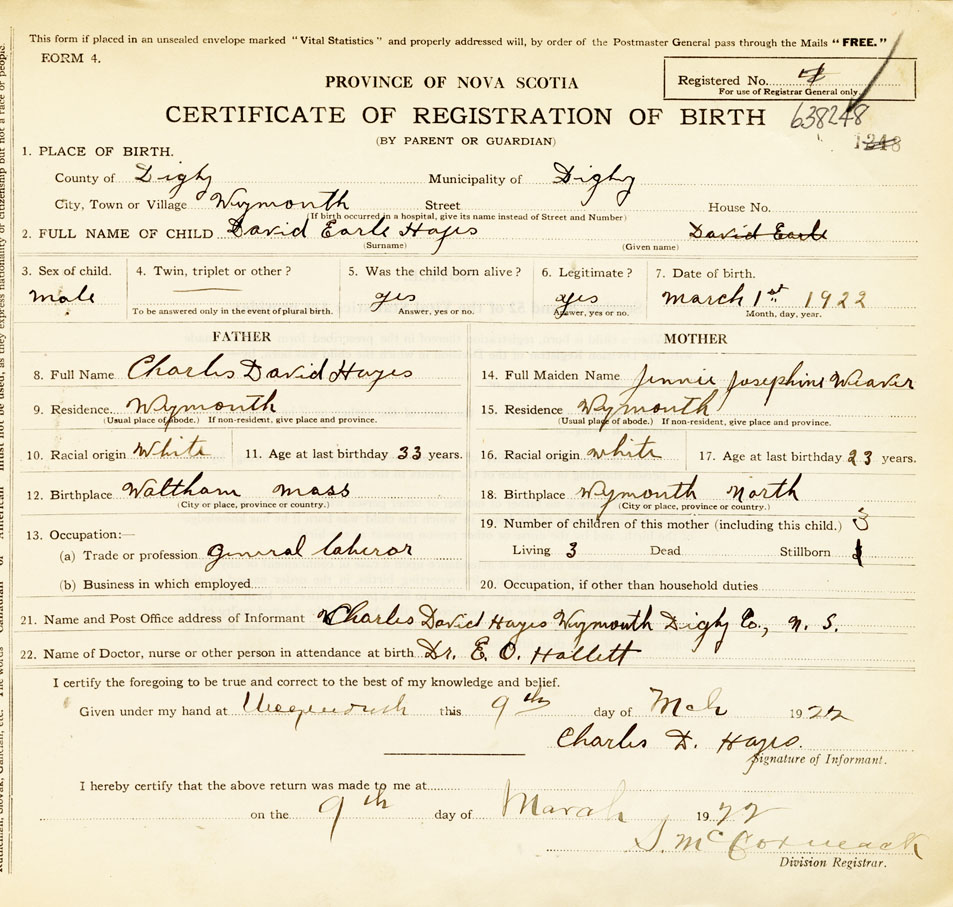 This form if placed in an unsealed envelope marked "Vital Statistics" and properly addressed will, by order of the Postmaster General pass through the Mails "FREE."
FORM 4.
PROVINCE OF NOVA SCOTIA
Registered No.
For use of Registrar General only.
CERTIFICATE OF REGISTRATION OF BIRTH 638248
(BY PARENT OR GUARDIAN)
1. PLACE OF BIRTH.
County of Digby Municipality of Digby
City, Town or Village Wymouth Street House No.
(If birth occurred in a hospital, give its name instead of Street and Number)
2. FULL NAME OF CHILD David Earle Hayes David Earle
(Surname) (Given name)
3. Sex of child. 4. Twin, triplet or other? 5. Was the child born alive? 6. Legitimate? 7. Date of birth.
male yes yes March 1st 1922
To be answered only in the event of plural birth. Answer, yes or no. Answer, yes or no. Month, day, year.
FATHER
8. Full Name Charles David Hayes
9. Residence Wymouth
(Usual place of abode.) If non-resident, give place and province.
10. Racial origin White 11. Age at last birthday 33 years.
12. Birthplace Waltham Mass
(City or place, province or country.)
13. Occupation:—
(a) Trade or profession general laberor
(b) Business in which employed
MOTHER
14. Full Maiden Name Jennie Josephine Weaver
15. Residence Wymouth
(Usual place of abode.) If non-resident, give place and province.
16. Racial origin white 17. Age at last birthday 23 years.
18. Birthplace Wymouth North
(City or place, province or country.)
19. Number of children of this mother (including this child.) 3
Living 3 Dead Stillborn
20. Occupation, if other than household duties
21. Name and Post Office address of Informant Charles David Hayes Wymouth Digby Co., N. S.
22. Name of Doctor, nurse or other person in attendance at birth Dr. E. O. Hallett
I certify the foregoing to be true and correct to the best of my knowledge and belief.
Given under my hand at this 9th day of Mch 1922
Charles D. Hayes.
Signature of Informant.
I hereby certify that the above return was made to me at
on the 9th day of March 1922
S. McCormack
Division Registrar.